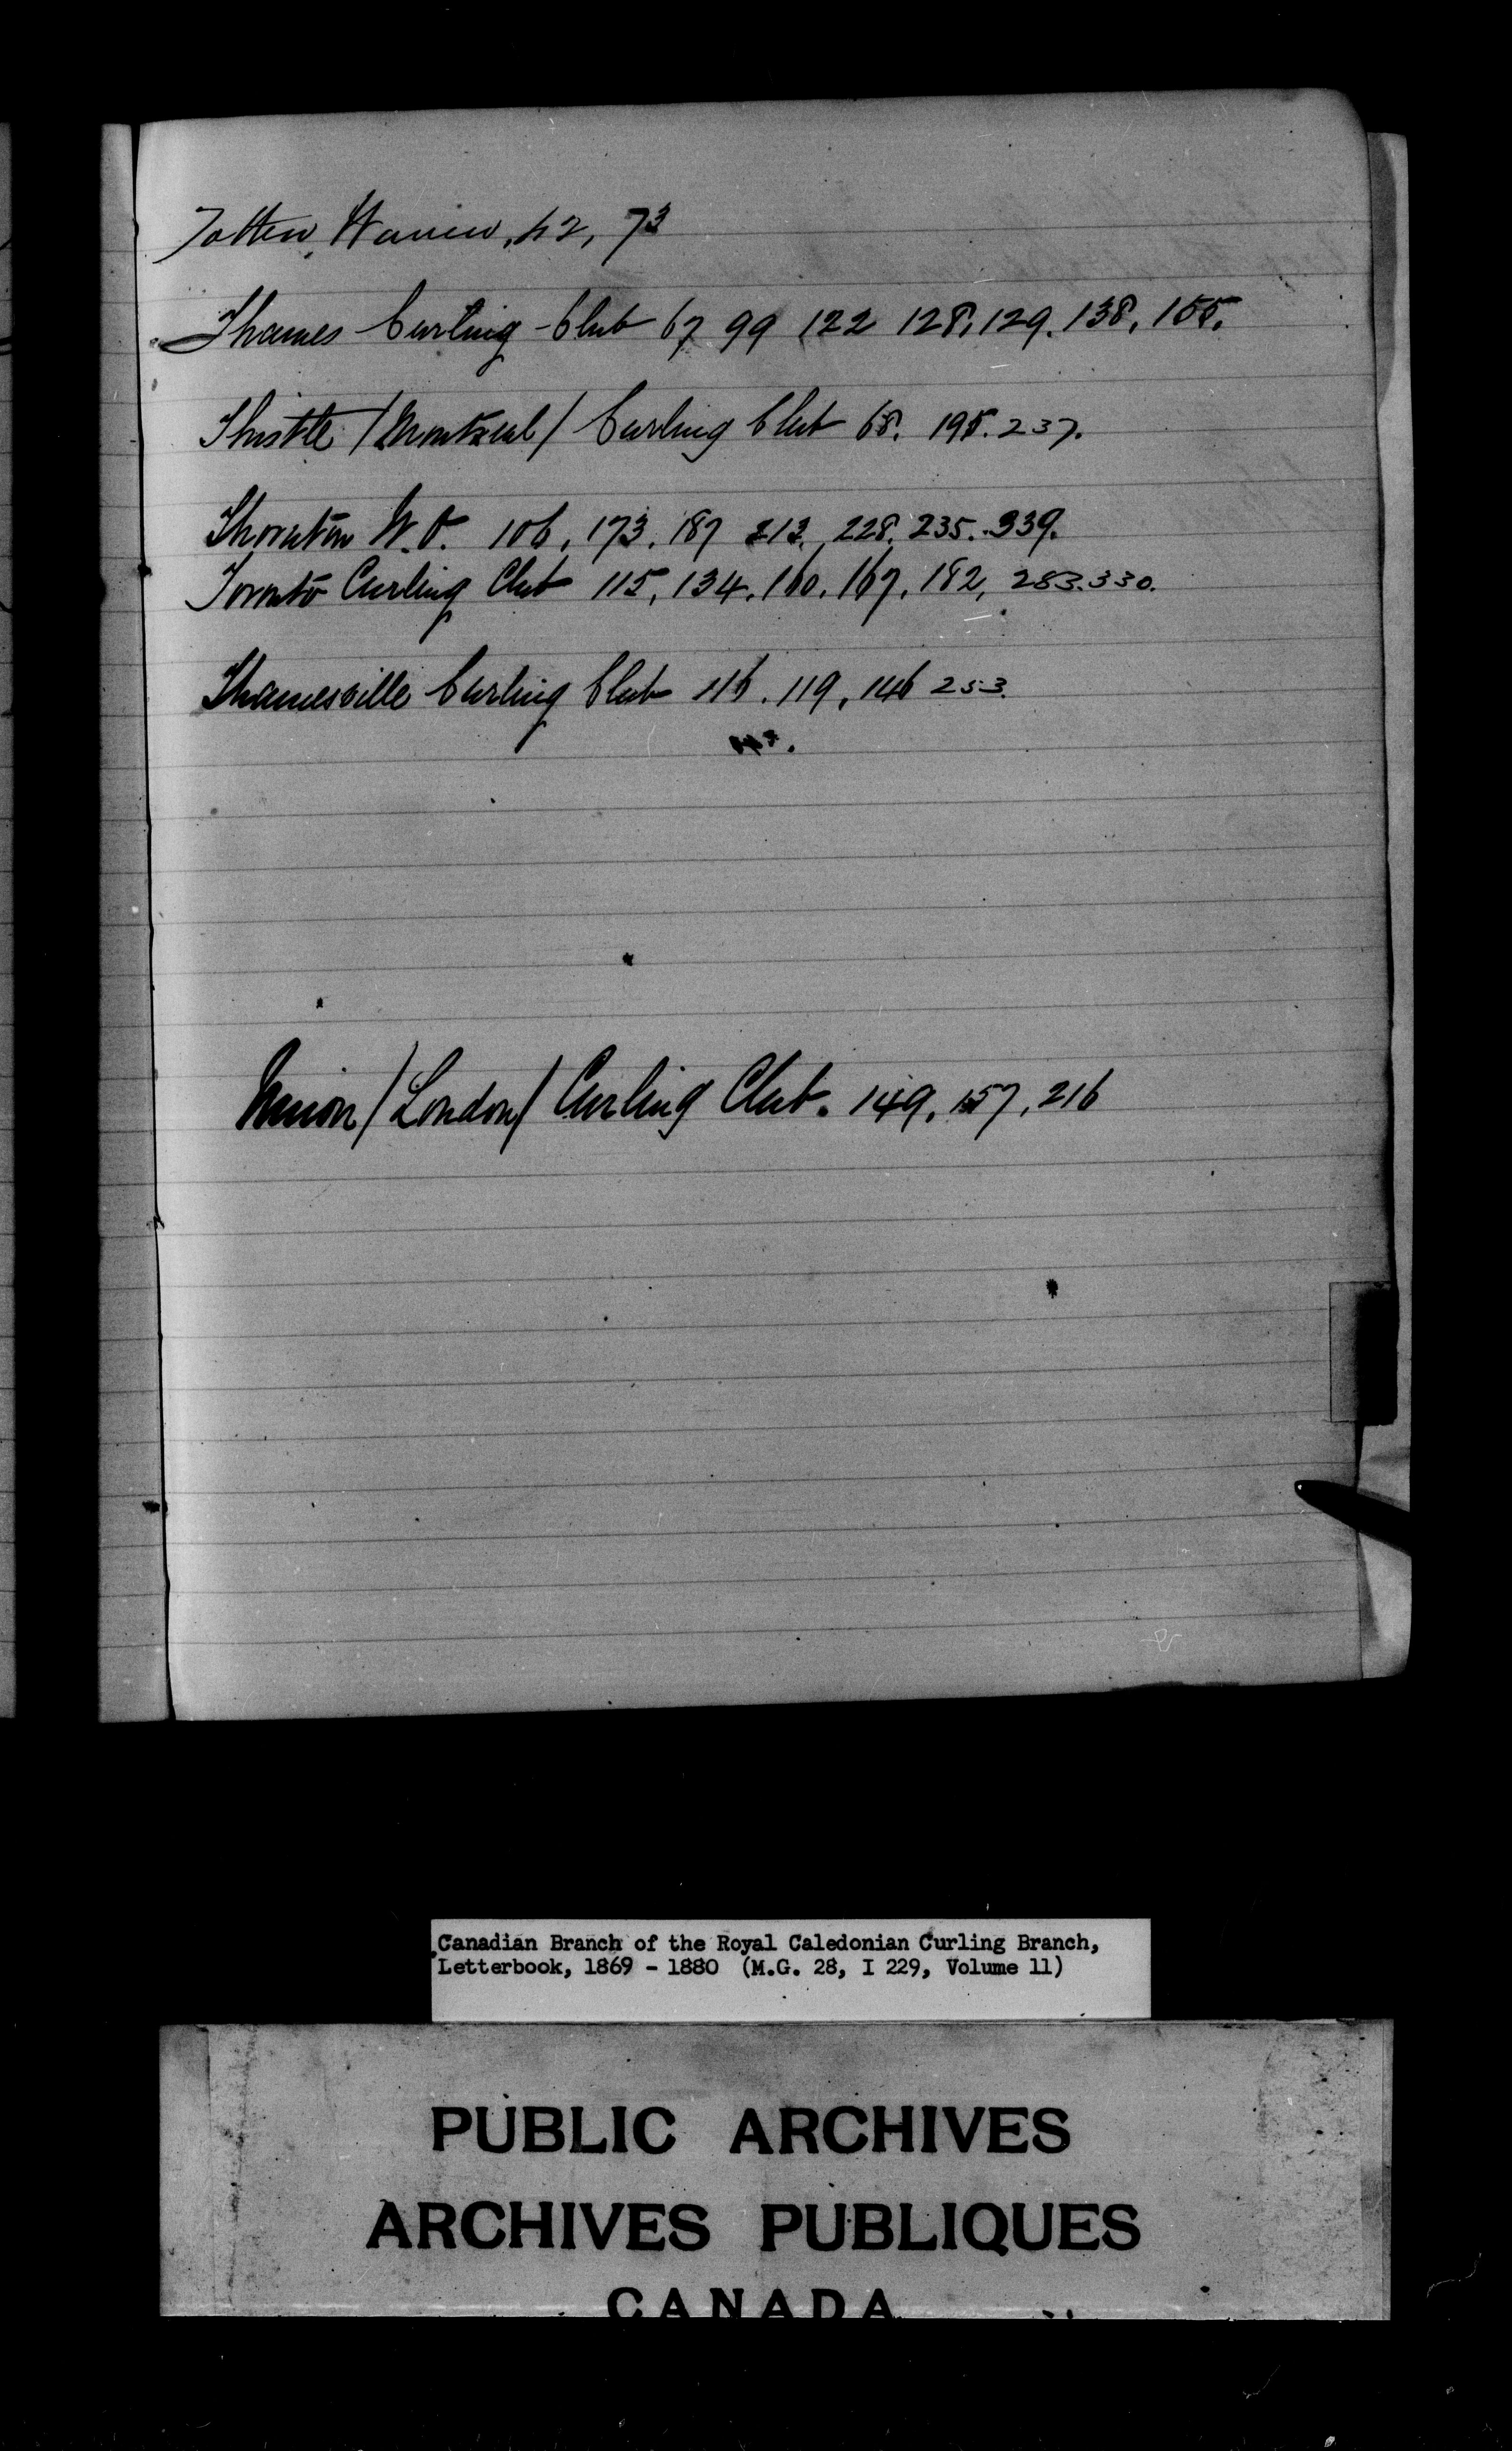 Totten, Warren, 42, 73
Thames Curling Club 67 99 122 128, 129. 138, 155.
Thistle /Montreal/ Curling Club 68. 195. 237.
Thornton W. O. 106, 173. 187 213, 228. 235. 339.
Toronto Curling Club 115, 134. 160. 167. 182, 283. 330.
Thamesville Curling Club 116. 119, 146 253.
Union /London/ Curling Club. 149, 157, 216
Canadian Branch of the Royal Caledonian Curling Branch,
Letterbook, 1869 - 1880 (M.G. 28, I 229, Volume 11)
PUBLIC ARCHIVES
ARCHIVES PUBLIQUES
CANADA